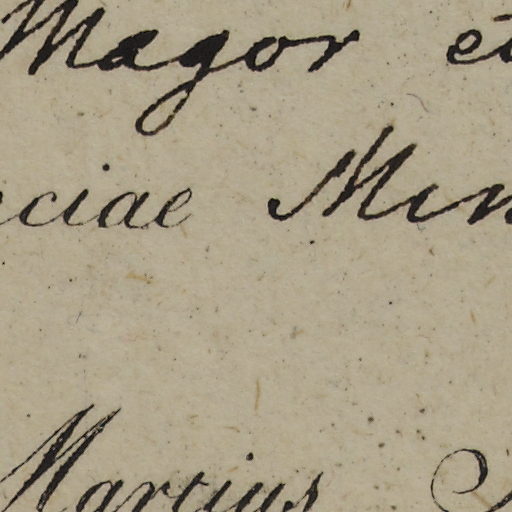 Magor et
ciae Min
Martius